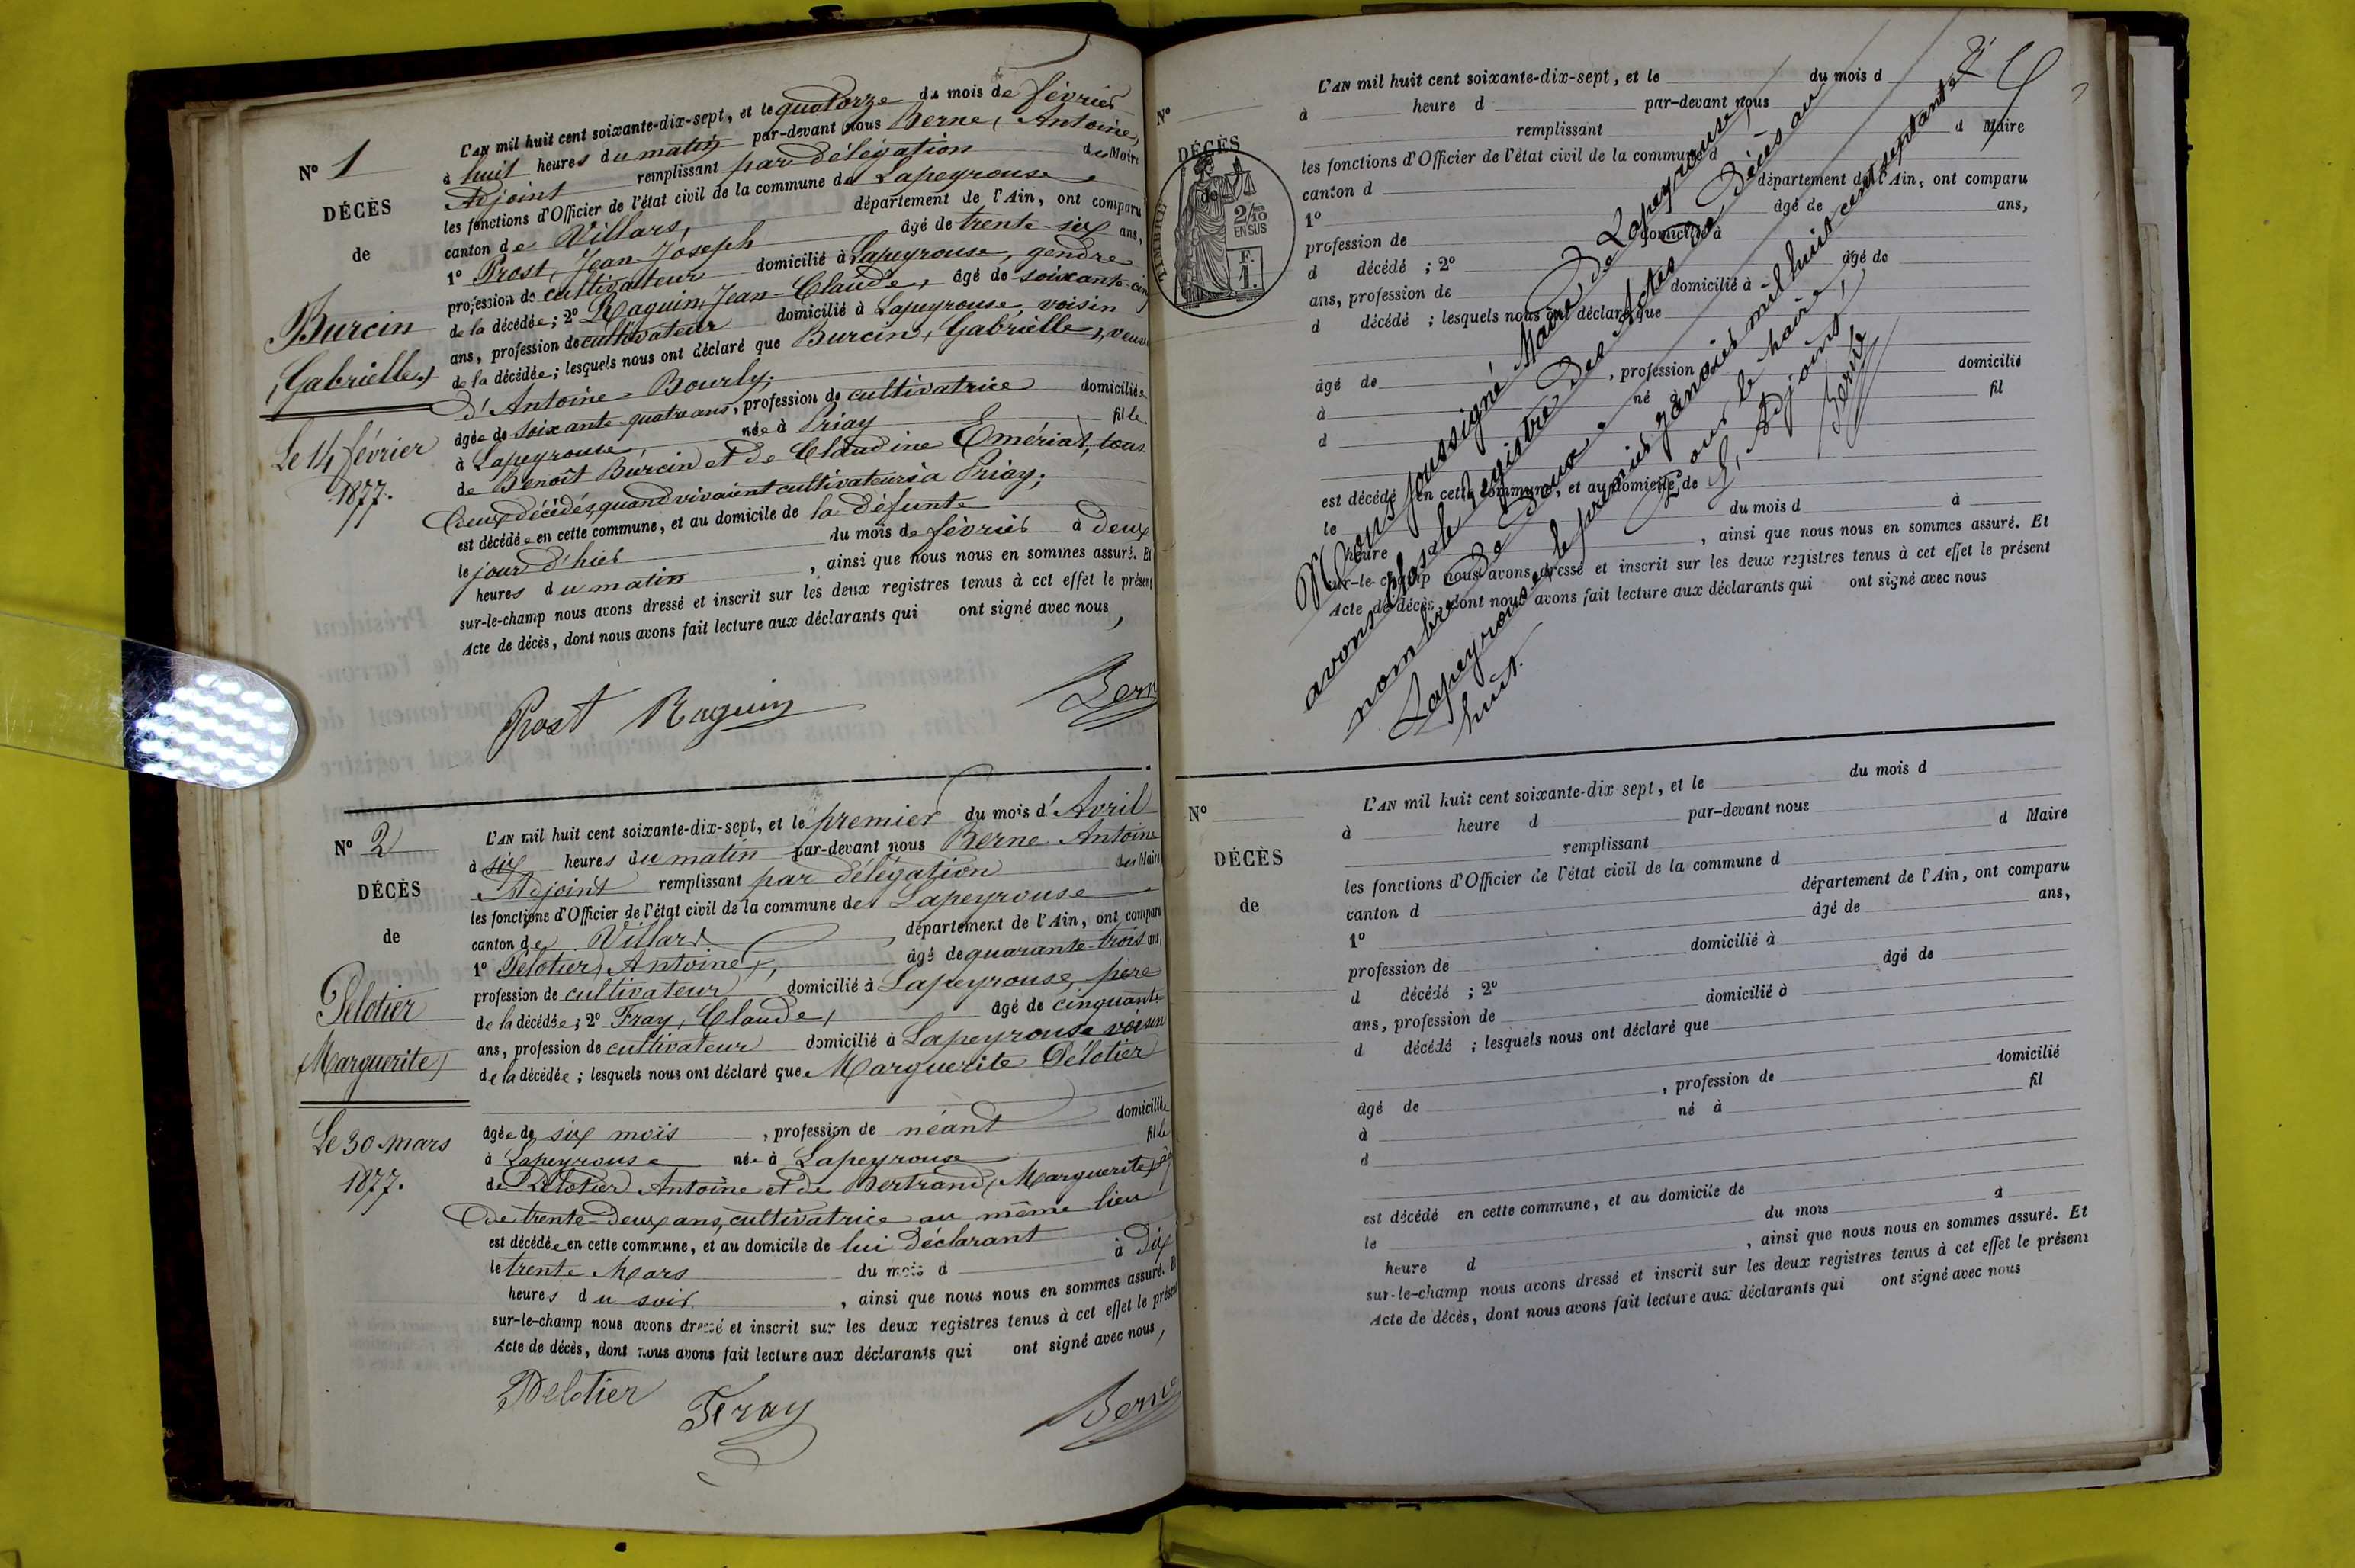 N° 1
DÉCÈS
de
Burcin
(Gabrielle)
Le 14 février
1877.
L'AN mil huit cent soixante-dix-sept, et le quatorze du mois de février
à huit heures du matin par-devant nous Berne, Antoine,
Adjoint remplissant par délégation du Maire
les fonctions d'Officier de l'état civil de la commune de Lapeyrouse
canton de Villars, département de l'Ain, ont comparu
1° Prost, Jean-Joseph âgé de trente-six ans,
profession de cultivateur domicilié à Lapeyrouse, gendre
de la décédée; 2° Raguin, Jean-Claude, âgé de soixante-cinq
ans, profession de cultivateur domicilié à Lapeyrouse, voisin
de la décédée; lesquels nous ont déclaré que Burcin, (Gabrielle), veuve
d'Antoine Bourly,
âgée de soixante-quatre ans, profession de cultivatrice domiciliée
à Lapeyrouse, née à Priay fille
de Benoît Burcin et de Claudine Emériat, tous
deux décédés, quand vivaient cultivateurs à Priay,
est décédée en cette commune, et au domicile de la défunte
le jour d'hier du mois de février à deux
heures du matin, ainsi que nous nous en sommes assuré. Et
sur-le-champ nous avons dressé et inscrit sur les deux registres tenus à cet effet le présent
Acte de décès, dont nous avons fait lecture aux déclarants qui ont signé avec nous,
Prost Raguin Berne
N° 2
DÉCÈS
de
Pelotier
(Marguerite)
Le 30 mars
1877.
L'AN mil huit cent soixante-dix-sept, et le premier du mois d'Avril
à six heures du matin par-devant nous Berne Antoine
Adjoint remplissant par délégation du Maire
les fonctions d'Officier de l'état civil de la commune de Lapeyrouse
canton de Villars, département de l'Ain, ont comparu
1° Pelotier, Antoine, âgé de quarante-trois ans,
profession de cultivateur domicilié à Lapeyrouse, père
de la décédée; 2° Fray, Claude, âgé de cinquante
ans, profession de cultivateur domicilié à Lapeyrouse voisin
de la décédée; lesquels nous ont déclaré que Marguerite Pélotier
âgée de six mois, profession de néant domiciliée
à Lapeyrouse née à Lapeyrouse fille
de Pelotier Antoine et de Bertrand, Marguerite,
de trente-deux ans, cultivatrice au même lieu
est décédée en cette commune, et au domicile de lui déclarant
le trente Mars du mois d à dix
heures du soir, ainsi que nous nous en sommes assuré. Et
sur-le-champ nous avons dressé et inscrit sur les deux registres tenus à cet effet le présent
Acte de décès, dont nous avons fait lecture aux déclarants qui ont signé avec nous,
Pelotier Fray Berne
N°
DÉCÈS
de
TIMBRE
2/10
EN SUS
F.
1.
L'AN mil huit cent soixante-dix-sept, et le du mois d
à heure d par-devant nous
remplissant d Maire
les fonctions d'Officier de l'état civil de la commune d
canton d département de l'Ain, ont comparu
1° âgé de ans,
profession de domicilié à
d décédé ; 2° âgé de
ans, profession de domicilié à
d décédé ; lesquels nous ont déclaré que
âgé de , profession de domicilié
à né à fil
d
est décédé en cette commune, et au domicile de
le du mois d à
heure , ainsi que nous nous en sommes assuré. Et
sur-le-champ nous avons dressé et inscrit sur les deux registres tenus à cet effet le présent
Acte de décès, dont nous avons fait lecture aux déclarants qui ont signé avec nous
Nous soussigné Maire de Lapeyrouse,
avons clos le registre des Actes de Décès au
nombre de Deux.
Lapeyrouse, le premier Janvier mil huit cent septante
huit.
Pour le maire,
L'Adjoint,
Berne
N°
DÉCÈS
de
L'AN mil huit cent soixante-dix sept, et le du mois d
à heure d par-devant nous
remplissant d Maire
les fonctions d'Officier de l'état civil de la commune d
canton d département de l'Ain, ont comparu
1° âgé de ans,
profession de domicilié à
d décédé ; 2° âgé de
ans, profession de domicilié à
d décédé ; lesquels nous ont déclaré que
âgé de , profession de domicilié
à né à fil
d
est décédé en cette commune, et au domicile de
le du mois à
heure d , ainsi que nous nous en sommes assuré. Et
sur-le-champ nous avons dressé et inscrit sur les deux registres tenus à cet effet le présent
Acte de décès, dont nous avons fait lecture aux déclarants qui ont signé avec nous